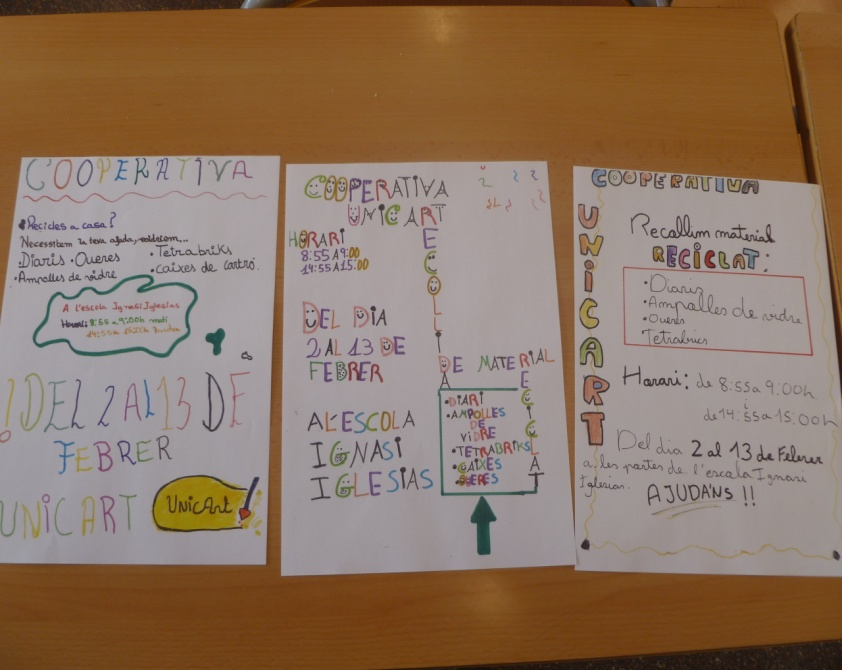 COOPERATIVA
Recicles a casa?
Necessitem la teva ajuda,
Diaris · Oueres
· Tetrabriks
· Ampolles de vidre
· caixes de cartró.
A l'escola Ignasi Iglesias
Horari: 8:55 a 9:00h matí
14:55 a 15:00h
¡DEL 2 AL 13 DE
FEBRER
UNICART
UnicArt
COOPERATIVA
UNICART
HORARI
8:55 A 9:00
14:55 A 15:00
DEL DIA
2 AL 13 DE
FEBRER
A L'ESCOLA
IGNASI
IGLESIAS
RECOLLIDA
DE MATERIAL
RECICLAT
· DIARI
· AMPOLLES
DE
VIDRE
· TETRABRIKS
· CAIXES
COOPERATIVA
UNICART
Recallim material
RECICLAT:
· Diaris
· Ampalles de vidre
· Oueres
Tetrabrics
Horari: de 8:55 a 9:00h
i
de 14:55 a 15:00h
Del dia 2 al 13 de Febrer
a les portes de l'escola Ignasi
Iglesias.
AJUDA'NS !!